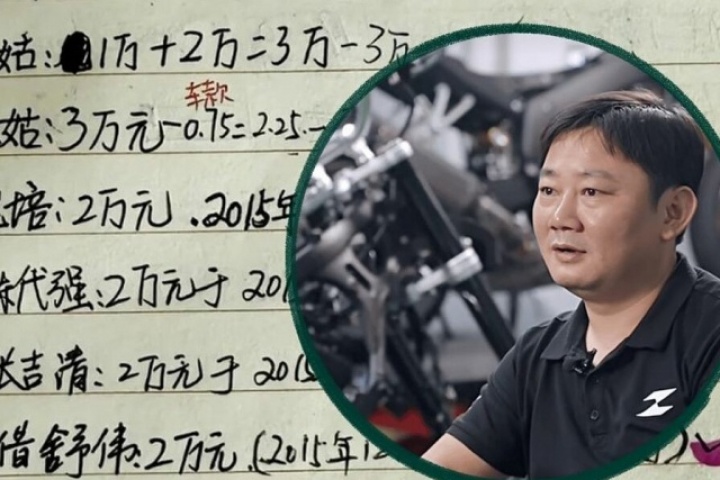 姑:1万+2万=3万-3万
车款
姑:3万元-0.75=2.25.
培:2万元.2015年
代强:2万元于201
吉清:2万元于2015
借舒伟:2万元.(2015年12